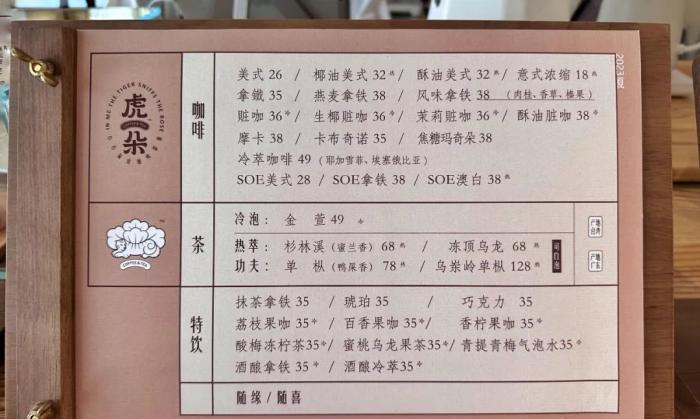 2023夏
IN ME THE TIGER SNIFFS THE ROSE
虎
朵
咖啡
美式 26 / 椰油美式 32 热 / 酥油美式 32 热 / 意式浓缩 18 热
拿鐵 35 / 燕麦拿铁 38 / 风味拿铁 38 (肉桂、香草、榛果)
赃咖 36 / 生椰赃咖 36 / 茉莉赃咖 36 / 酥油脏咖 38
摩卡 38 / 卡布奇诺 35 / 焦糖玛奇朵 38
冷萃咖啡 49 (耶加雪菲、埃塞俄比亚)
SOE美式 28 / SOE拿铁 38 / SOE澳白 38 热
COFFEE&TEA
茶
冷泡: 金 萱 49
热萃: 杉林溪 (蜜兰香) 68 热 / 冻顶乌龙 68 热
功夫: 单 枞 (鸭屎香) 78 热 / 乌岽岭单枞 128 热
可自泡
产地台湾
产地广东
特饮
抹茶拿铁 35 / 琥珀 35 / 巧克力 35
荔枝果咖 35 / 百香果咖 35 / 香柠果咖 35
酸梅冻柠茶 35 / 蜜桃乌龙果茶 35 / 青提青梅气泡水 35
酒酿拿铁 35 / 酒酿冷萃 35
随缘 / 随喜